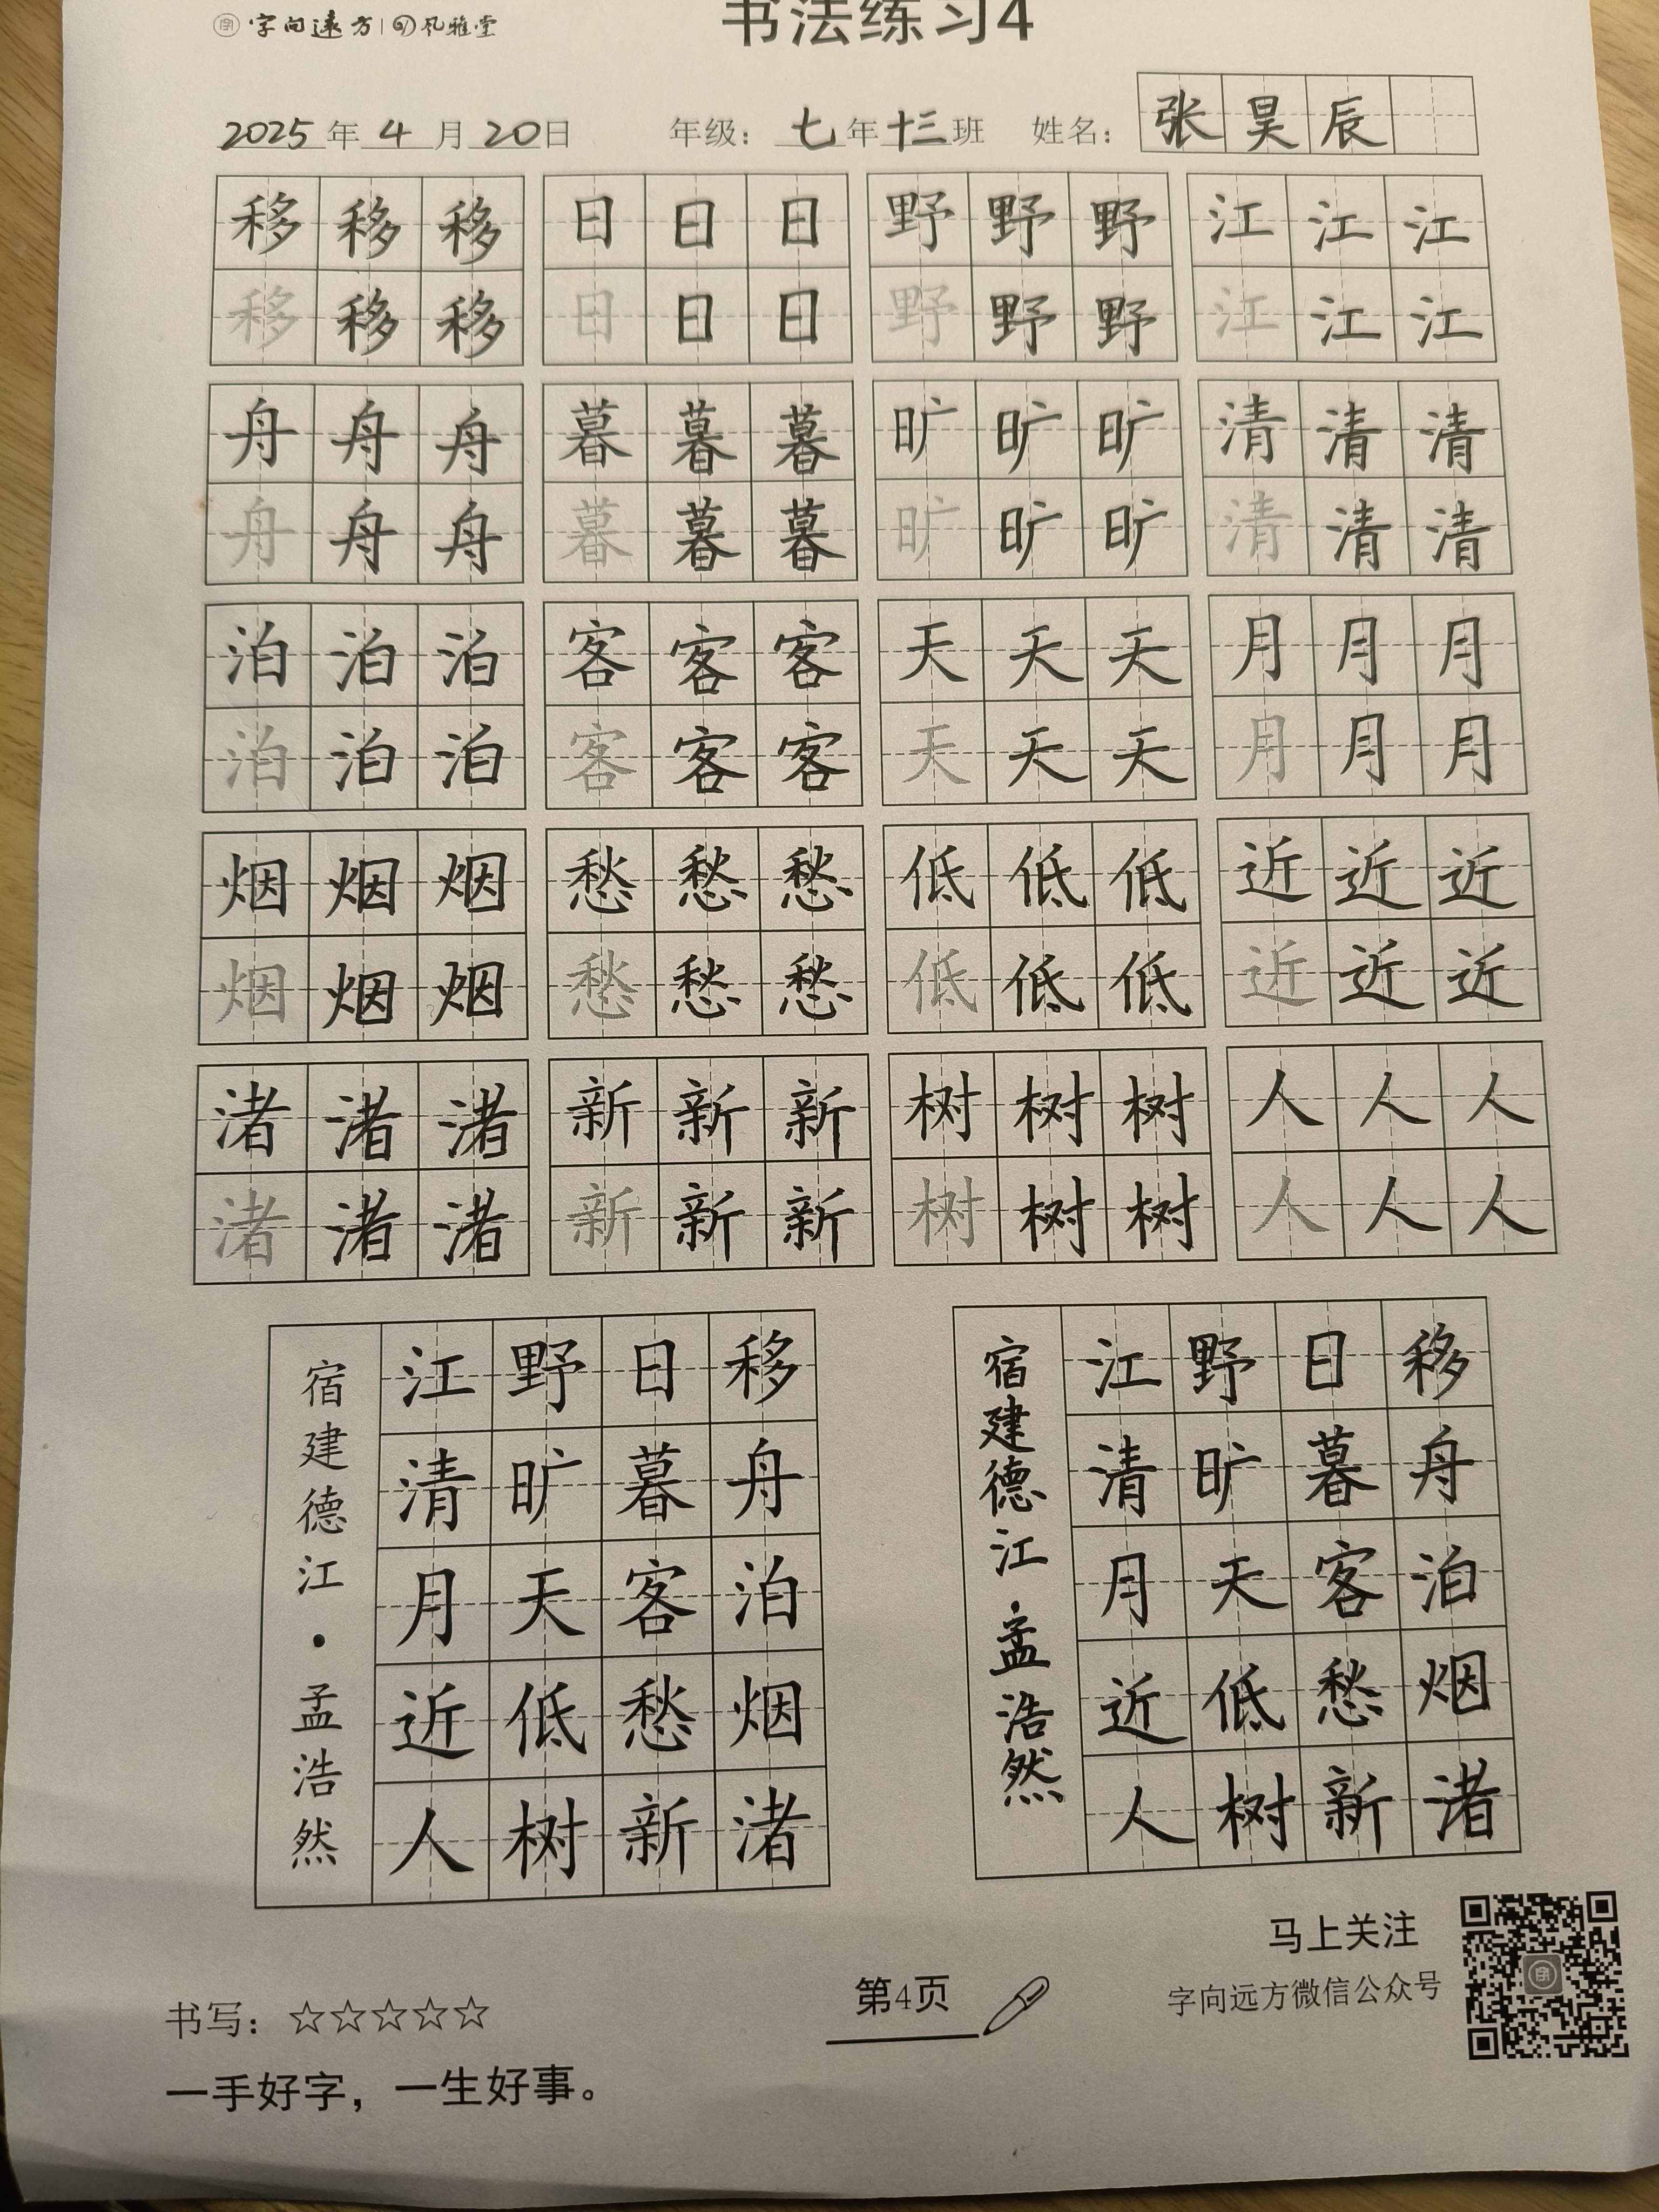 字向远方 | 风雅堂
书法练习4
2025年4月20日 年级：七年十三班 姓名：张昊辰
移移移 日日日 野野野 江江江
移移移 日日日 野野野 江江江
舟舟舟 暮暮暮 旷旷旷 清清清
舟舟舟 暮暮暮 旷旷旷 清清清
泊泊泊 客客客 天天天 月月月
泊泊泊 客客客 天天天 月月月
烟烟烟 愁愁愁 低低低 近近近
烟烟烟 愁愁愁 低低低 近近近
渚渚渚 新新新 树树树 人人人
渚渚渚 新新新 树树树 人人人
移舟泊烟渚
日暮客愁新
野旷天低树
江清月近人
宿建德江·孟浩然
移舟泊烟渚
日暮客愁新
野旷天低树
江清月近人
宿建德江·孟浩然
马上关注
字向远方微信公众号
书写：☆☆☆☆☆
第4页
一手好字，一生好事。